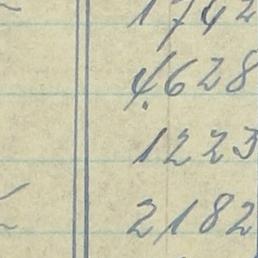 1742
4628
1223
2182